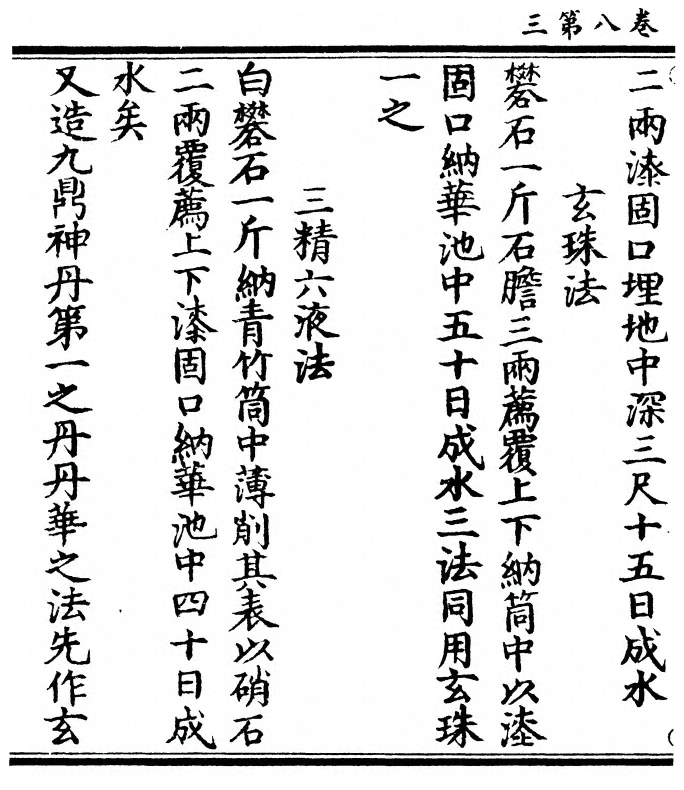 卷八第三
二兩漆固口埋地中深三尺十五日成水
玄珠法
礬石一斤石膽三兩薦覆上下納筒中以漆
固口納華池中五十日成水三法同用玄珠
一之
三精六液法
白礬石一斤納青竹筒中薄削其表以硝石
二兩覆薦上下漆固口納華池中四十日成
水矣
又造九鼎神丹第一之丹丹華之法先作玄